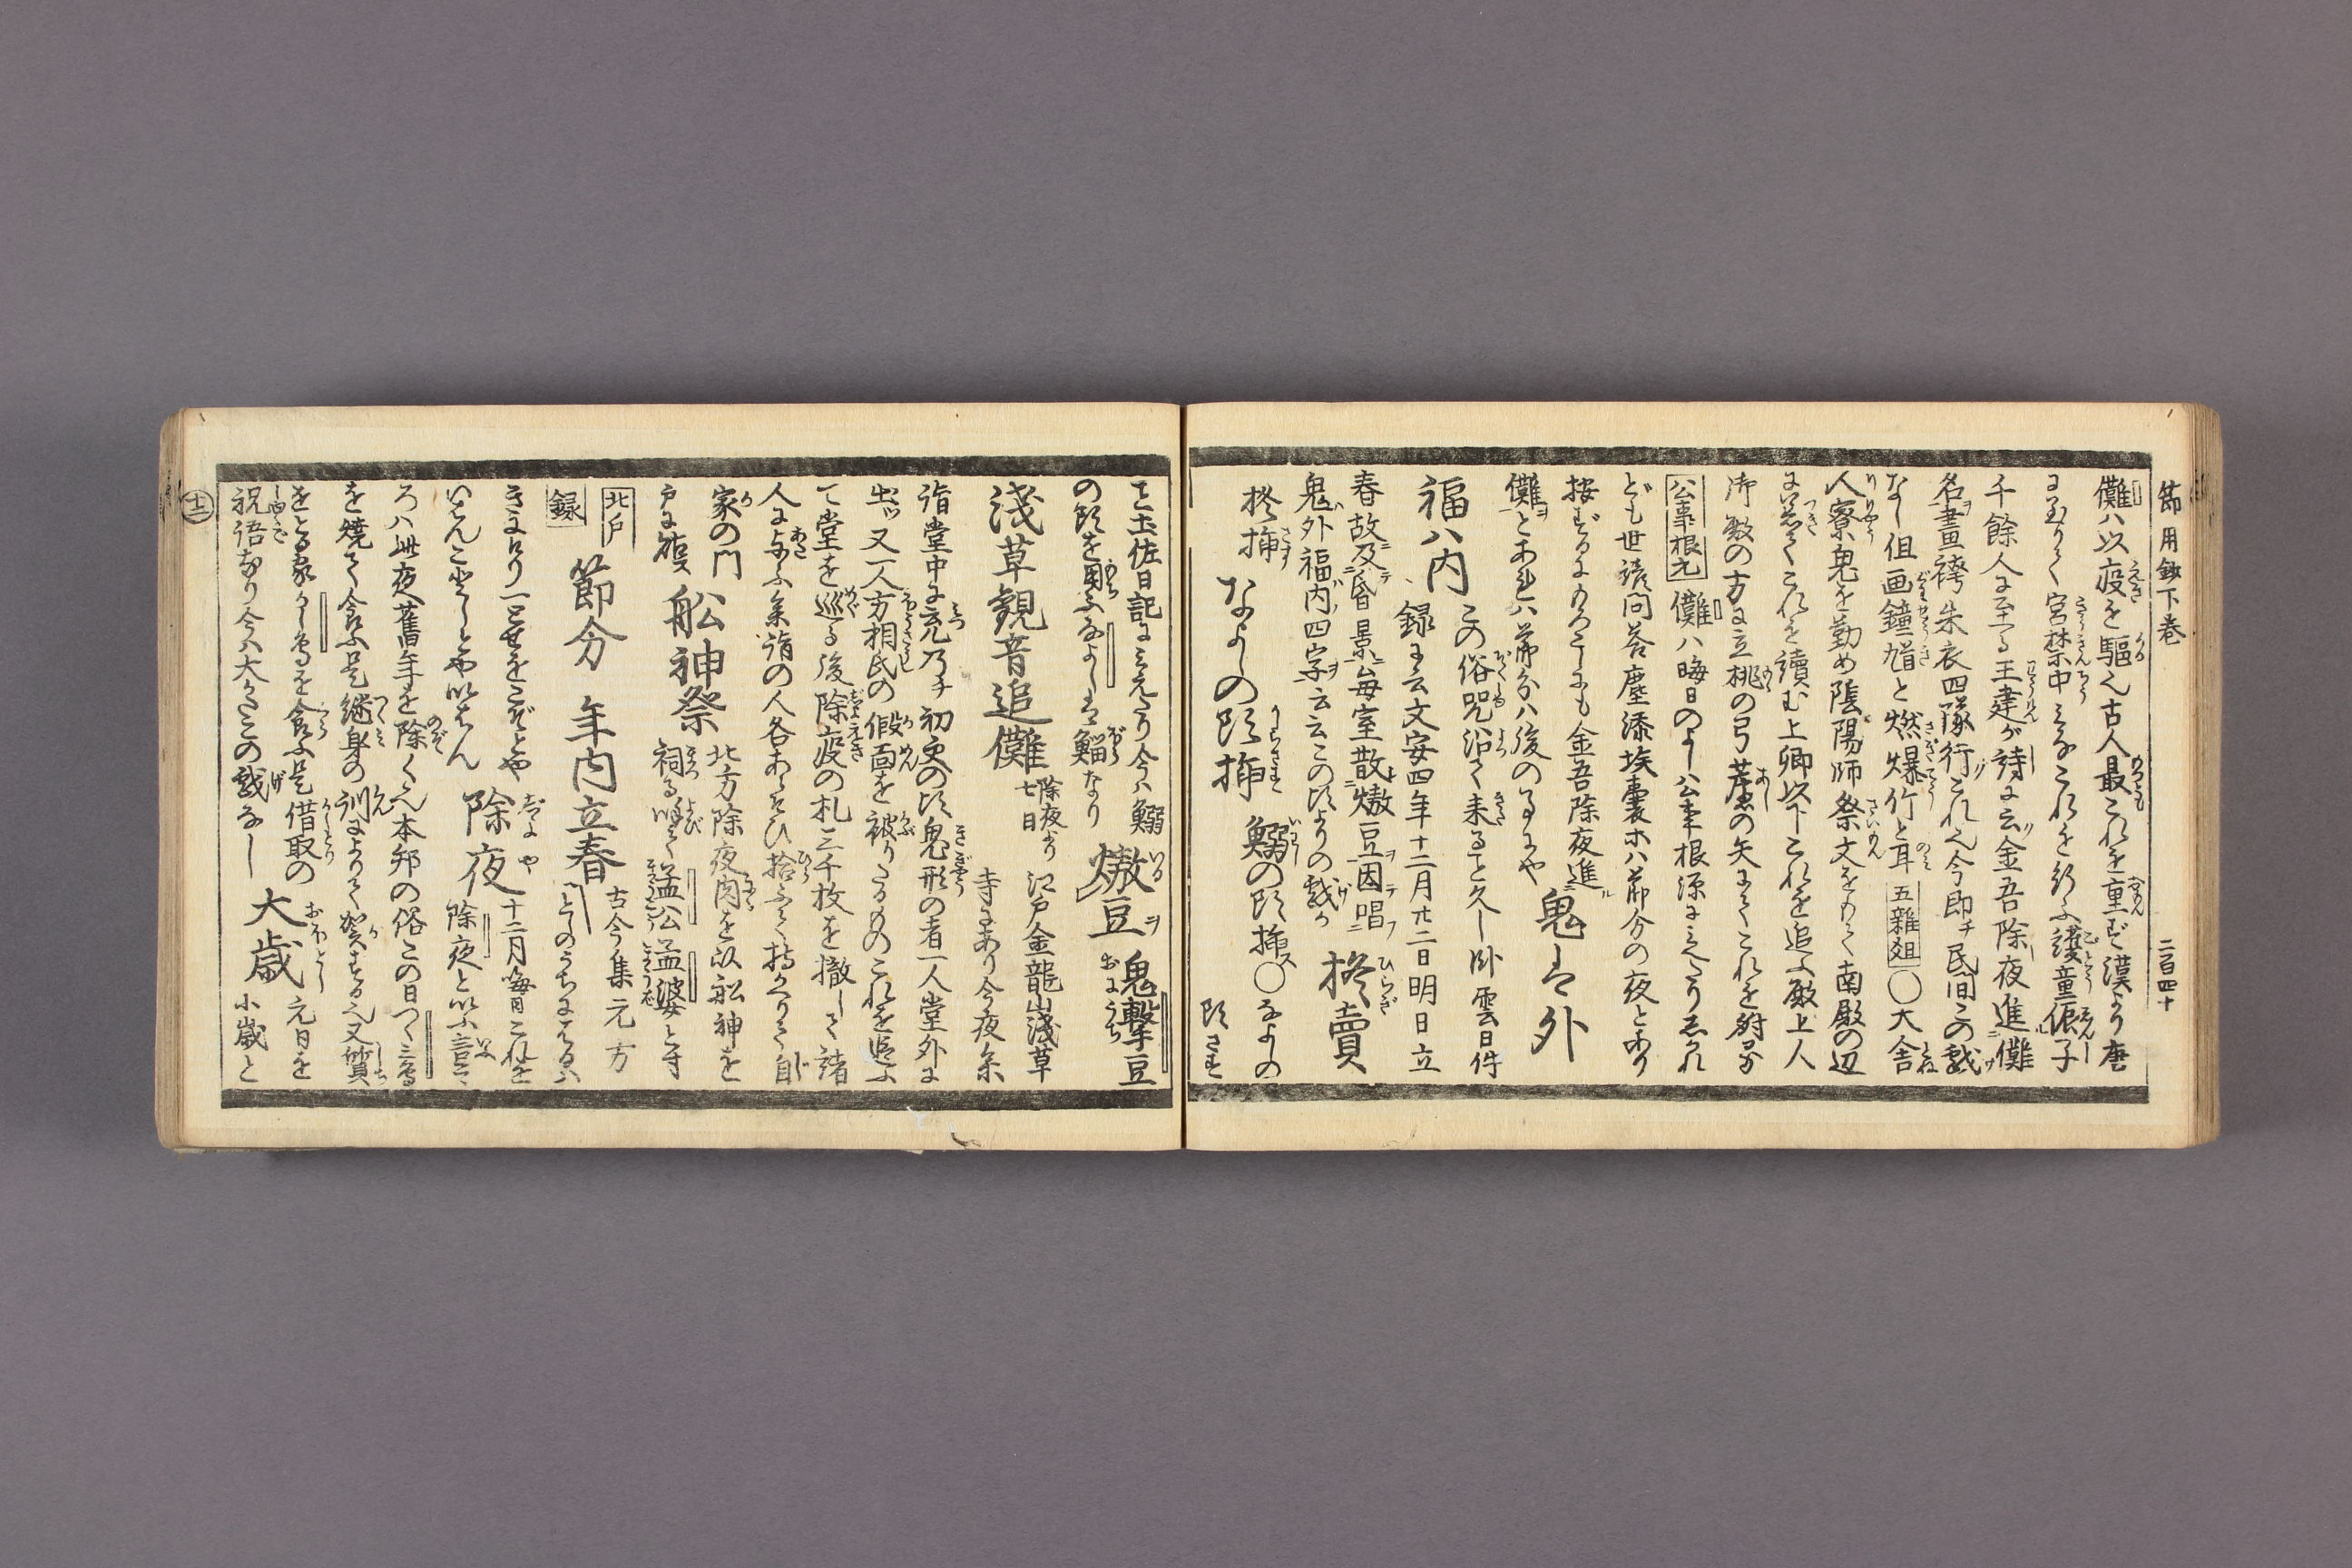 節用鈔下巻　二百四十
儺ハ以疫を驅也古人最これを重ず漢より唐
に至りて宮禁中みなこれを行ふ護童侲子
千餘人に至る王建が詩に云金吾除夜進儺
名畫袴朱衣四隊行これ也今即チ民間この戯
なし但画鐘馗と燃爆竹と耳五雜爼〇大舎
人寮鬼を勤め陰陽師祭文をもて南殿の辺
につきてこれを讀む上卿以下これを追ふ殿上人
御殿の方に立桃の弓葦の矢にてこれを射る
公事根元儺ハ晦日のよし公事根源にみえたりしかれ
ども世諺問荅塵添埃囊ホハ節分の夜とあり
按ずるにもろこしにも金吾除夜進
儺とあれハ節分ハ後の事にや鬼は外
福ハ内この俗呪沿て来ると久し臥雲日件
録に云文安四年十二月廿二日明日立
春故及昏景毎室散熬豆因唱
鬼外福内四字云云この頃よりの戯か柊賣
柊揷なよしの頭揷鰯の頭揷〇なよの
頭さす
と土佐日記にみえたり今ハ鰯
の頭を用ふなよしは鯔なり熬豆鬼撃豆
淺草觀音追儺除夜より七日江戸金龍山淺草
寺にあり今夜参
詣堂中に充乃チ初更の頃鬼形の者一人堂外に
出ッ又一人方相氏の假面を被りたるものこれを追ふ
て堂を巡る後除疫の札三千枚を撤して諸
人に与ふ参詣の人各あらそひ拾ふて持かへりて自
家の門
戸に貼舩神祭北方除夜肉を以舩神を
祠る呼て孟公孟婆と号
北戸
録節分年内立春古今集元方
としのうちにはるハ
きにけり一とせをこぞとや
いはんことしとや以はん除夜十二月晦日これを
除夜と以ふ言こ
ろハ此夜舊年を除く也本邦の俗この日つくみ鳥
を燒て食ふ是継身の訓によりて祭する也又質
をとる家かし鳥を食ふ是借取の
祝語なり今ハ大かたこの戯なし大歳元日を
小歳と
十二